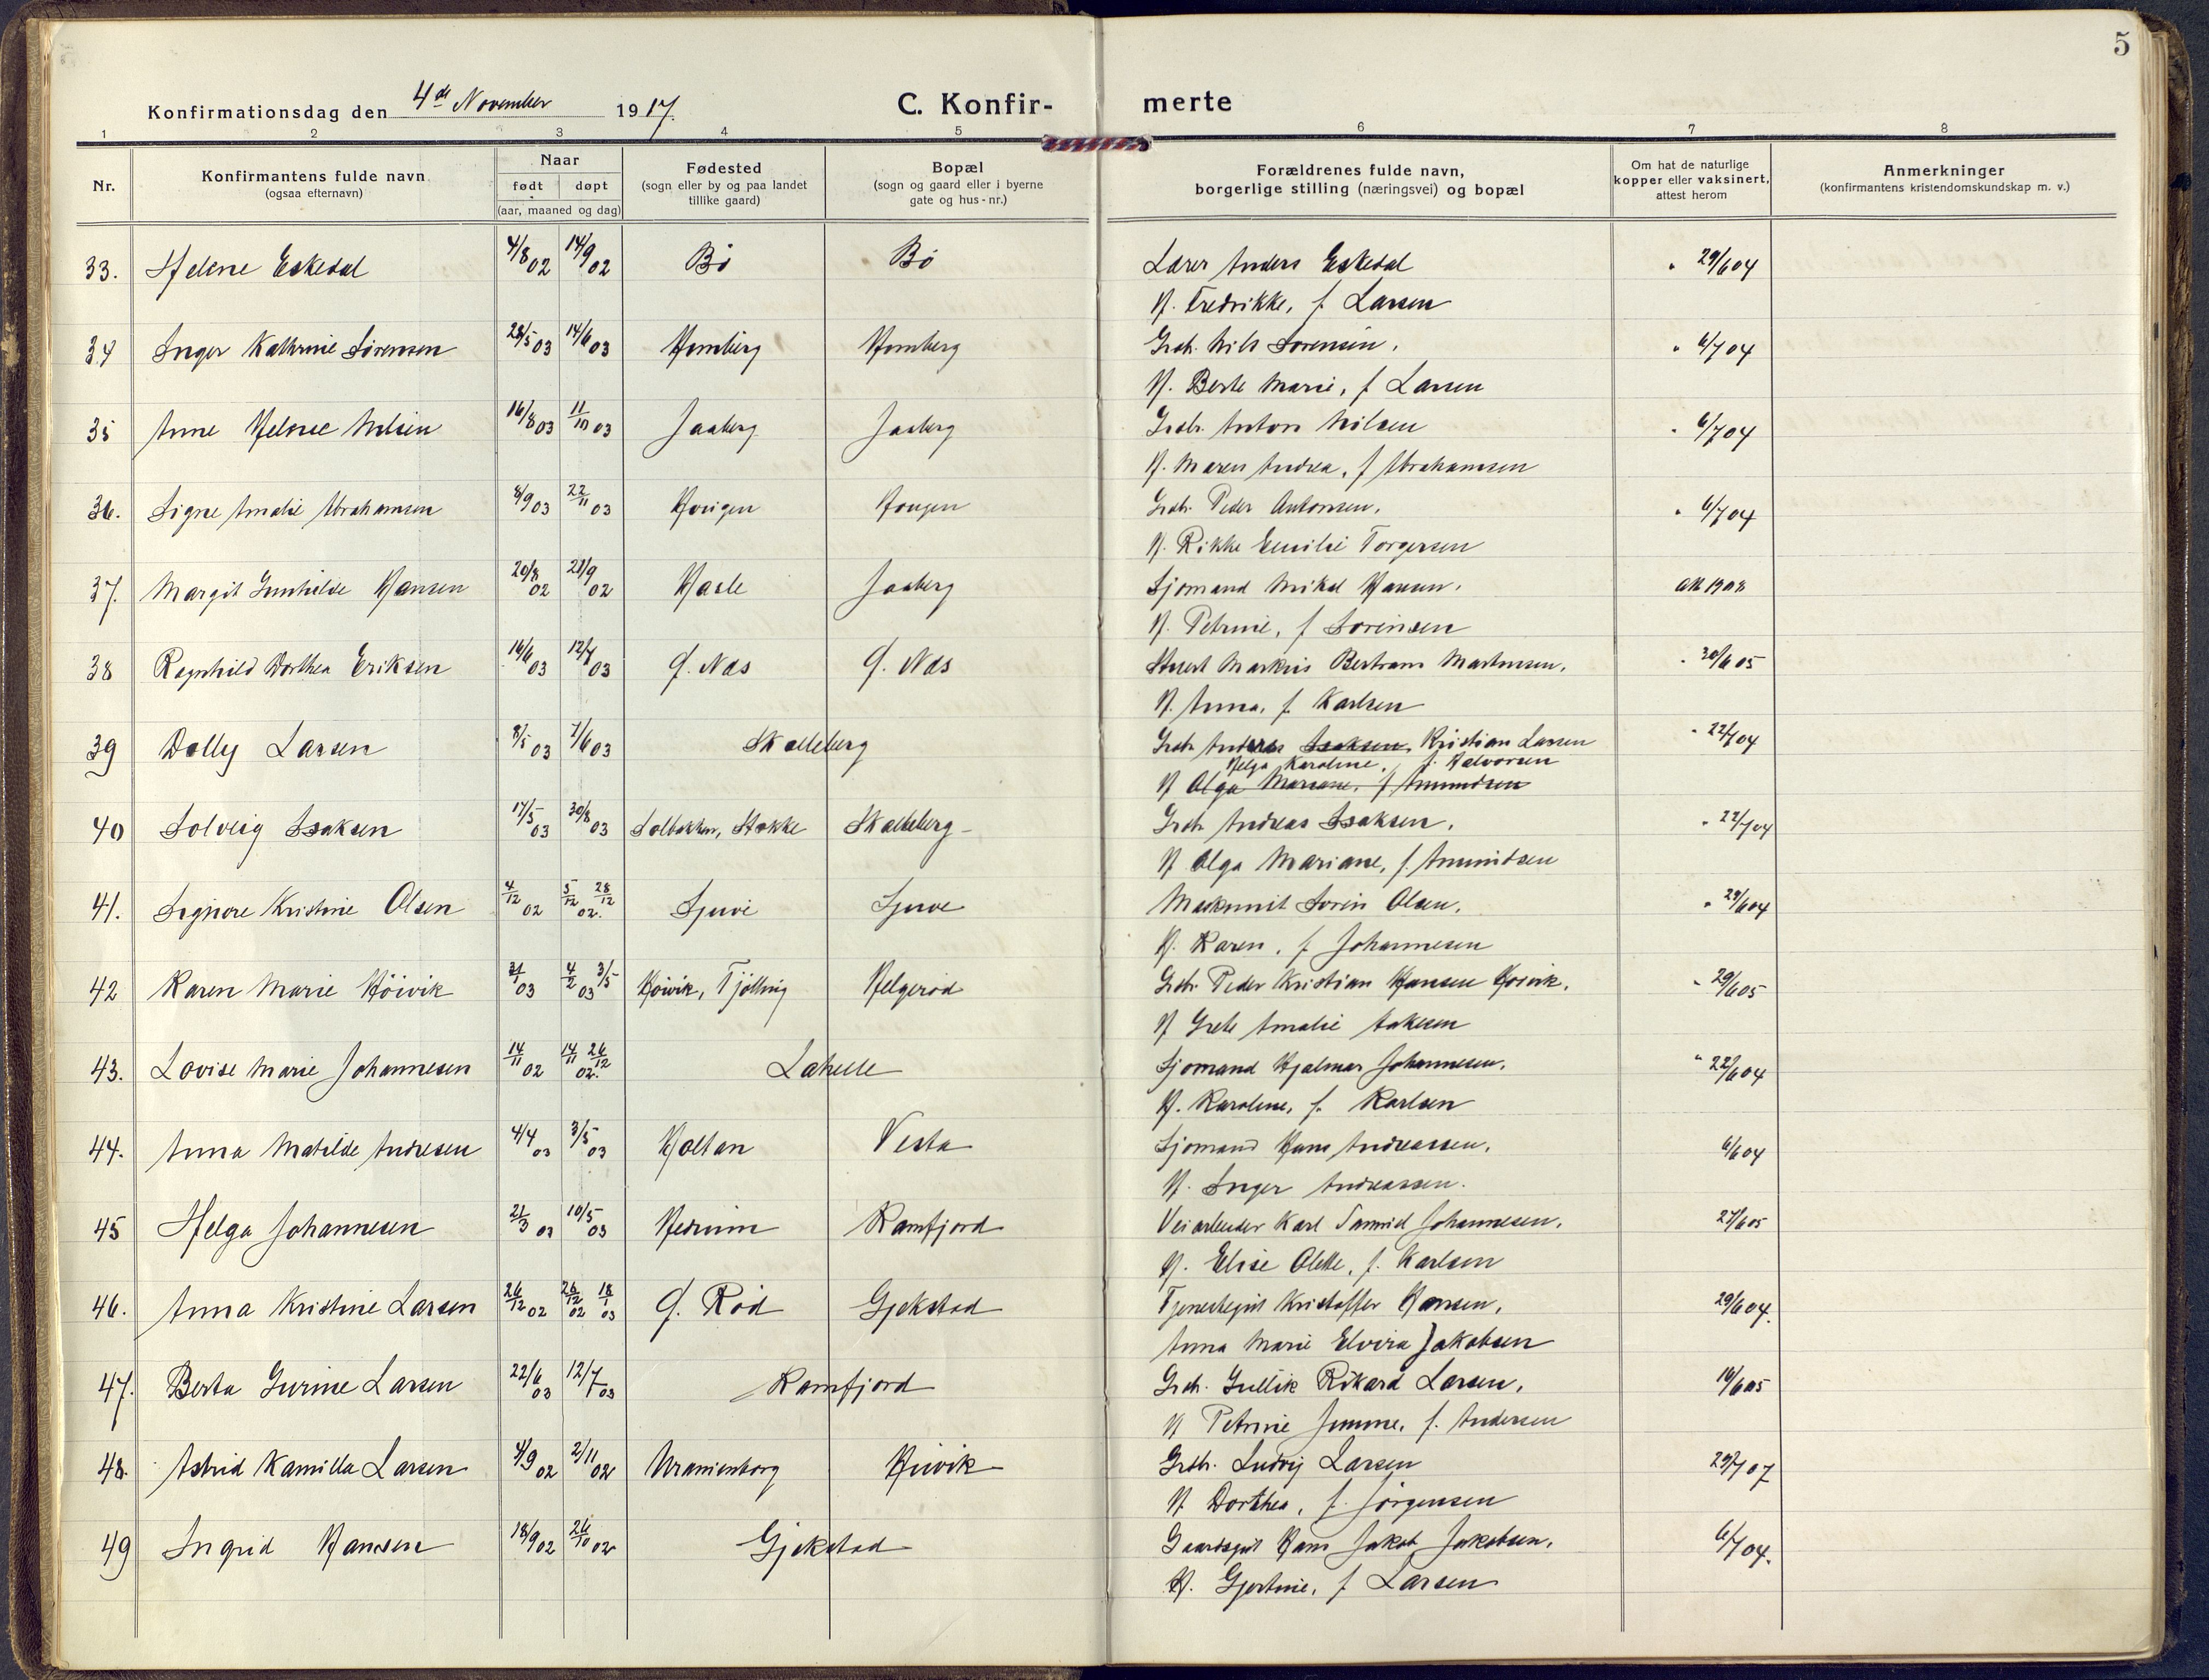 5
Konfirmationsdag den 4de November 1917.
C. Konfirmerte
1 2 3 4 5 6 7 8
Nr.
Konfirmantens fulde navn
(ogsaa efternavn)
Naar
født døpt
(aar, maaned og dag)
Fødested
(sogn eller by og paa landet
tillike gaard)
Bopæl
(sogn og gaard eller i byerne
gate og hus-nr.)
Forældrenes fulde navn,
borgerlige stilling (næringsvei) og bopæl
Om hat de naturlige
kopper eller vaksinert,
attest herom
Anmerkninger
(konfirmantens kristendomskundskap m. v.)
33. Helene Eskedal 4/8 02 14/9 02 Bö Bö Lærer Anders Eskedal " 29/6 04
H. Fredrikke, f. Larsen
34 Inger Kathrine Sörensen 28/5 03 14/6 03 Homberg Homberg Grdb. Nils Sorensen, " 6/7 04
H. Berte Marie, f. Larsen
35 Anne Helene Nilsen 16/8 03 11/10 03 Jaaberg Jaaberg Grdbr. Anton Nilsen " 6/7 04
H. Maren Andrea, f Abrahamsen
36. Signe Amalie Abrahamsen 8/9 03 22/11 03 Haugen Haugen Grdb. Peder Antonsen, " 6/7 04
H. Rikke Emilie Torgersen
37. Margit Gunhilde Hansen 20/8 02 21/9 02 Hasle Jaaberg Sjomand Mikal Hansen. att 1908
H. Petrine, f Sorensen
38 Ragnhild Dorthea Eriksen 16/6 03 12/7 03 G. Næs G. Næs Stuert Markus Bertram Martinsen, " 30/6 05
H. Anna, f. Karlsen
39 Dolly Larsen 8/5 03 7/6 03 Skalleberg Grdb Anders Isaksen, Kristian Larsen " 22/7 04
Helga Karoline, f. Halvorsen
H Olga Mariane, f Amundsen
40 Solveig Isaksen 17/5 03 30/8 03 Solbakken, Stokke Skalleberg Grdb Andreas Isaksen, " 22/7 04
H Olga Mariane, f. Amundsen
41. Signore Kristine Olsen 4/12 02 5/12 28/12 02. Sjuve Sjuve Maskinist Sorin Olsen, " 29/6 04
H. Karen, f Johannesen
42 Karen Marie Höivik 31/1 03 4/2 3/5 03 Höivik, Tjölling Helgerod Grdb. Peder Kristian Hansen Hoivik, " 29/6 05
H Grete Amalie Aakesen
43. Lovise Marie Johannesen 14/11 02 14/11 26/12 02. Lahelle Sjomand Hjalmar Johannesen, " 22/6 04
H. Karoline, f. Karlsen
44. Anna Matilde Andresen 4/4 03 3/5 03 Holtan Vesta Sjomand Hans Andreassen, 6/6 04
H. Inger Andreassen.
45 Helga Johannesen 21/3 03 10/5 03 Hedrum Ramfjord Veiarbeider Karl Samuel Johannesen, 27/6 05
H. Elise Olette, f. Karlsen
46. Anna Kristine Larsen 26/12 02 26/12 02 18/1 03 G. Rod Gjekstad Tjenestegut Kristoffer Hansen, 29/6 04.
Anna Marie Elvira Jakobsen
47. Berta Gurine Larsen 22/6 03 12/7 03 Ramfjord Grdb. Gullik Rikard Larsen, 16/6 05
H Petrine Jensine, f. Andersen
48. Astrid Kamilla Larsen 4/9 02 2/11 02 Uranienborg Höivik Grdb. Ludvig Larsen 29/7 07
H Dorthea, f. Jörgensen
49 Ingrid Hansen 18/9 02 26/10 02 Gjekstad Gaardsgut Hans Jakob Jakobsen, 6/7 04.
H. Gjertine, f Larsen